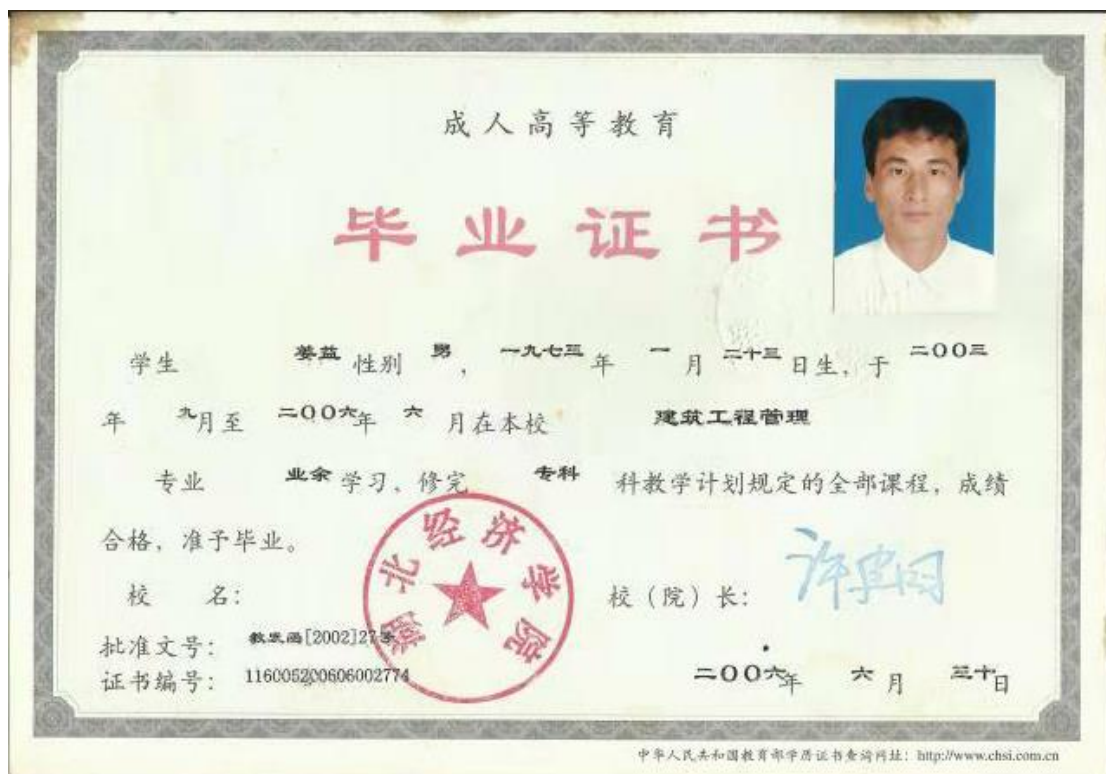 成人高等教育
毕业证书
学生 姜益 性别 男，一九七三年 一月 二十三日生，于 二00三
年 九月至 二00六年 六月在本校 建筑工程管理
专业 业余学习，修完 专科 科教学计划规定的全部课程，成绩
合格，准予毕业。
校 名：
湖北经济学院
校（院）长：
批准文号： 教发函[2002]27号
证书编号： 116005200606002774
二00六年 六月 三十日
中华人民共和国教育部学历证书查询网址：http://www.chsi.com.cn